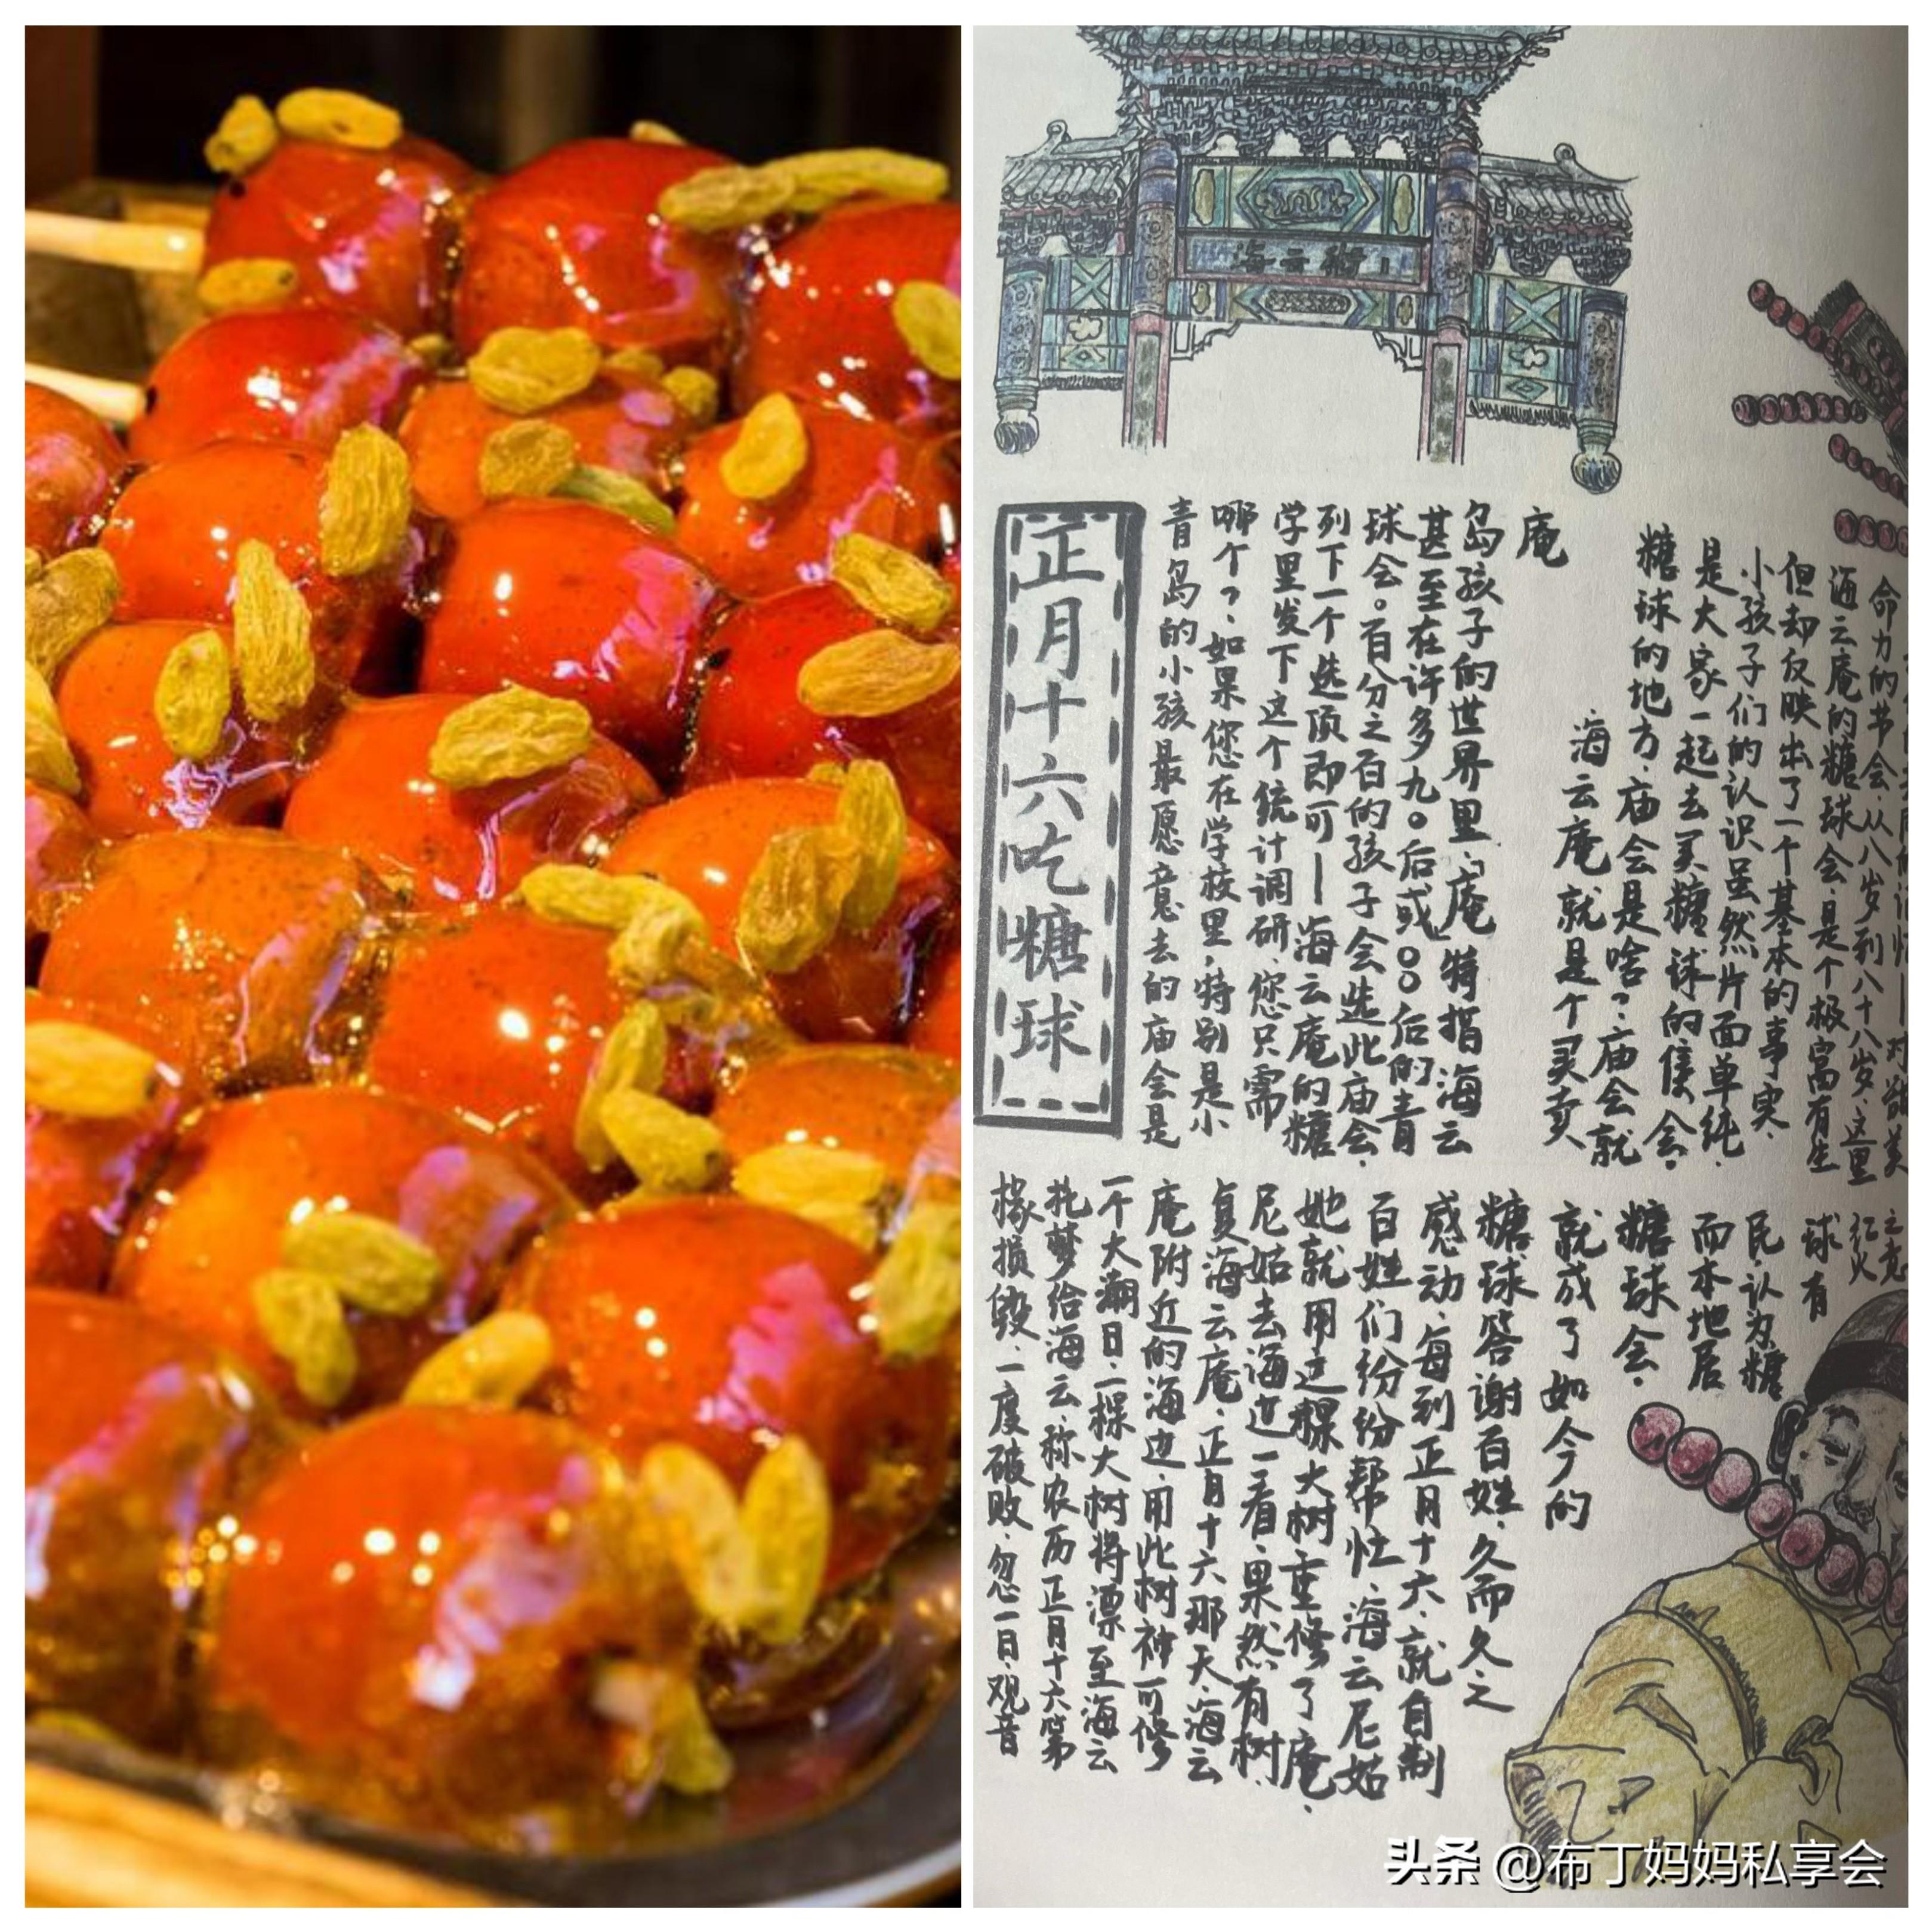 海云街
正月十六吃糖球
青岛的小孩最愿意去的庙会是
哪个？如果您在学校里，特别是小
学里发下这个统计调研，您只需
列下一个选项即可——海云庵的糖
球会。百分之百的孩子会选此庙会，
甚至在许多九〇后或〇〇后的青
岛孩子的世界里，“庵”特指海云
庵
海云庵就是个买卖
糖球的地方，庙会是啥？庙会就
是大家一起去买糖球的集会。
小孩子们的认识虽然片面单纯，
但却反映出了一个基本的事实，
海云庵的糖球会，是个极富有生
命力的节会，从八岁到八十八岁，这里
椽损毁，一度破败，忽一日，观音
托梦给海云，称农历正月十六第
一个大潮日，一棵大树将漂至海云
庵附近的海边，用此树神可修
复海云庵，正月十六那天，海云
尼姑去海边一看，果然有树，
她就用这棵大树重修了庵，
百姓们纷纷帮忙，海云尼姑
感动，每到正月十六，就自制
糖球答谢百姓，久而久之
就成了如今的
糖球会。
而本地居
民，认为糖
球有
红火
之意
头条 @布丁妈妈私享会